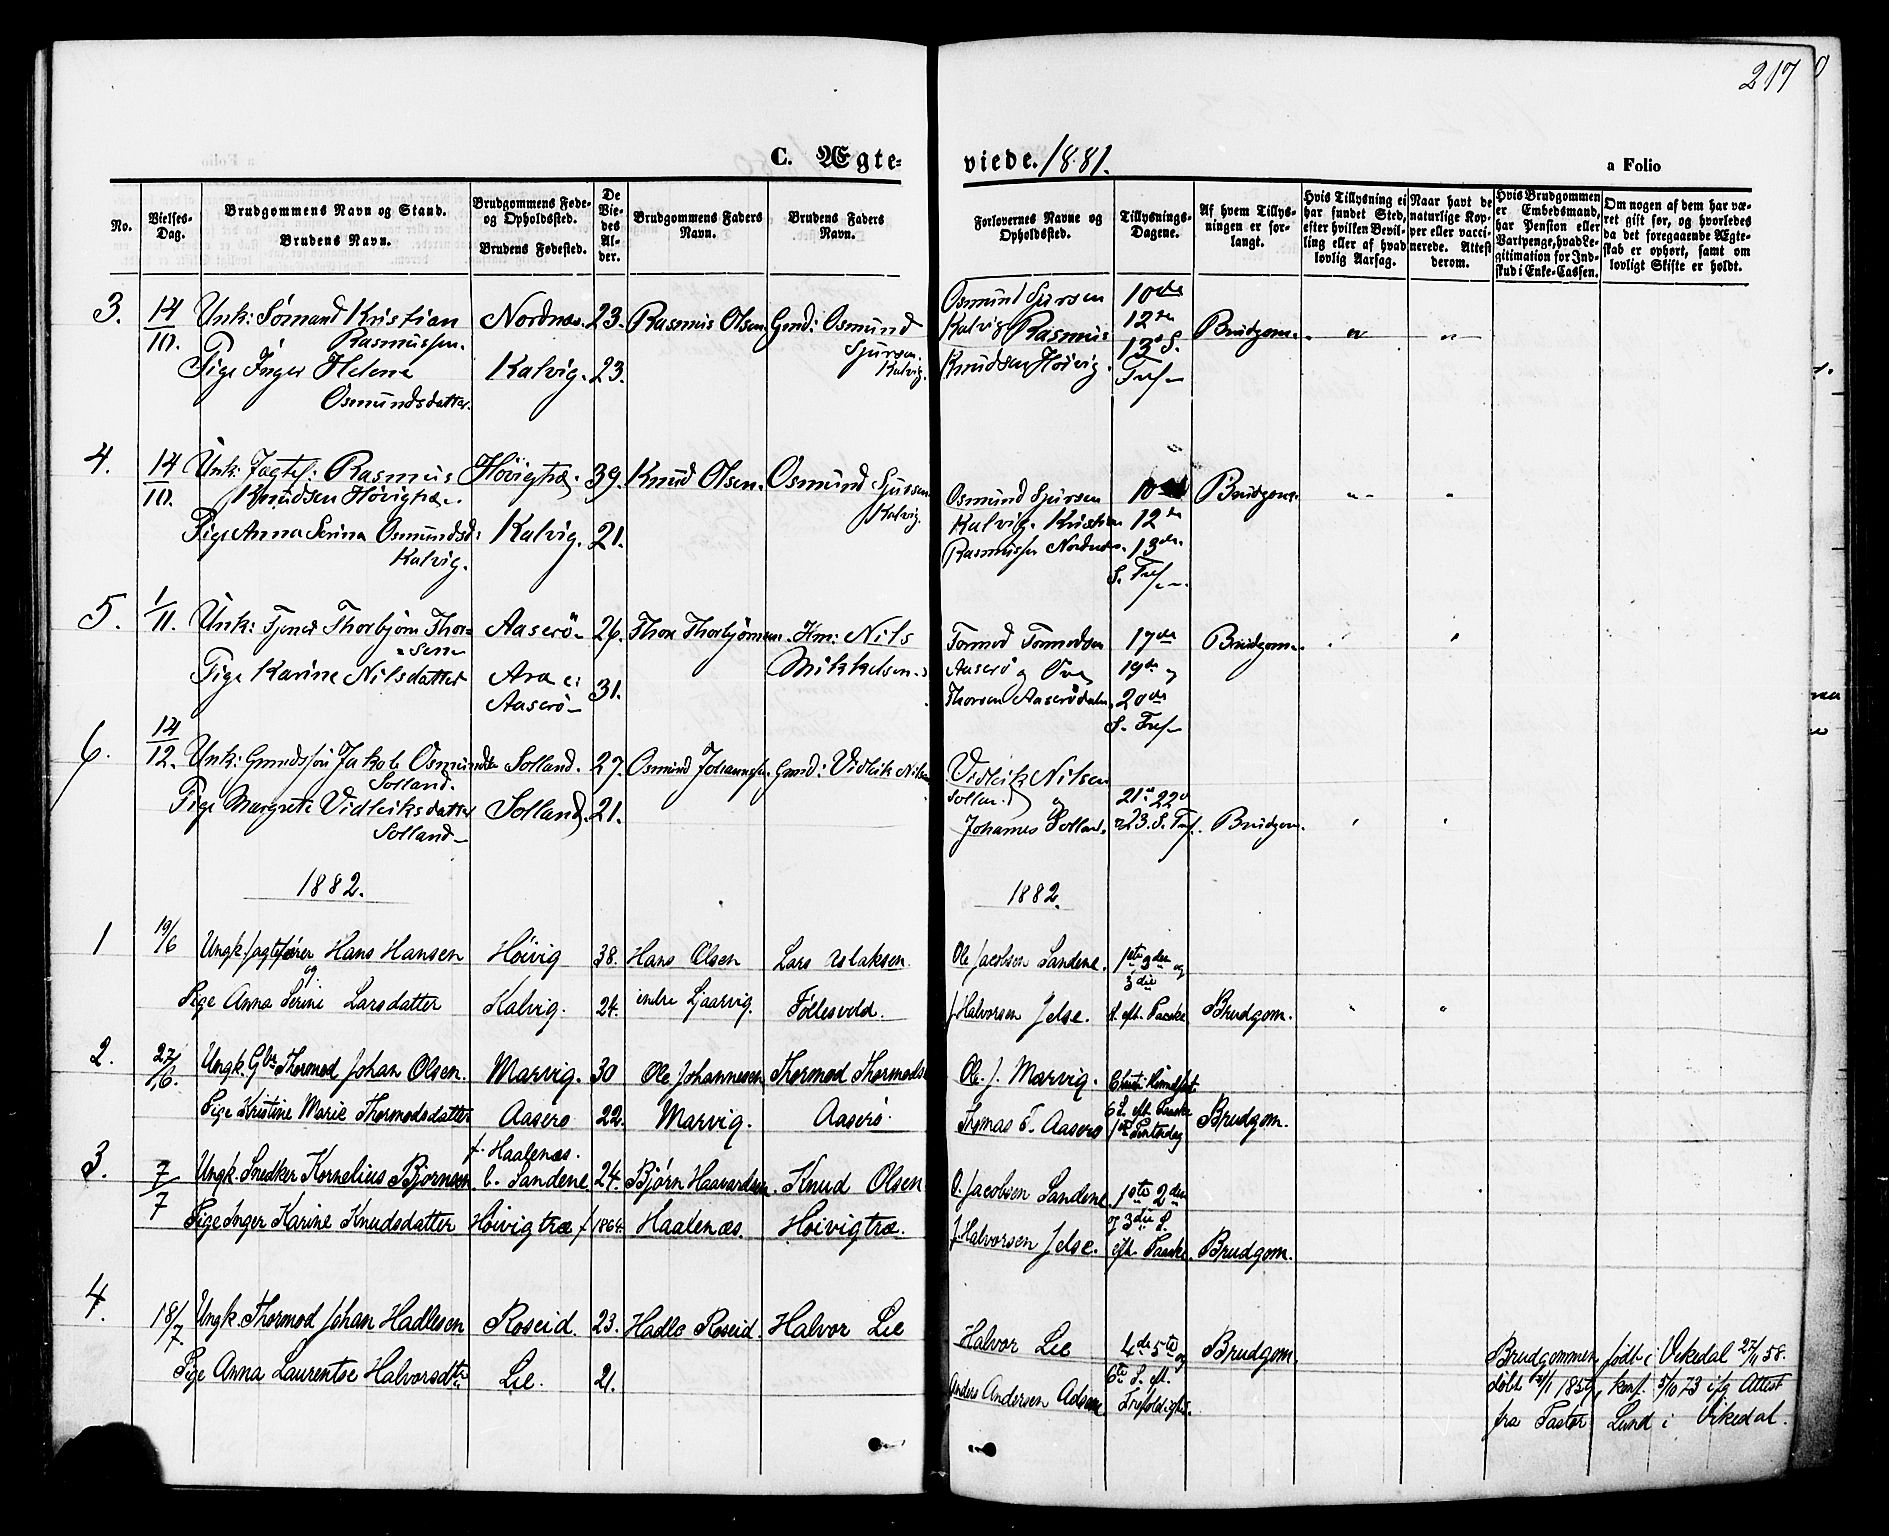 217
C. Ægte-
viede. 1881.
a Folio
No.
Vielses-Dag.
Brudgommens Navn og Stand.
Brudens Navn.
Brudgommens Føde- og Opholdssted.
Brudens Fødested.
De Viedes Alder.
Brudgommens Faders Navn.
Brudens Faders Navn.
Forlovernes Navne og Opholdssted.
Tillysnings-Dagene.
Af hvem Tillysningen er forlangt.
Hvis Tillysning ei har fundet Sted, efter hvilken Bevilling eller af hvad lovlig Aarsag.
Naar havt de naturlige Kopper eller vaccinerede. Attest derom.
Hvis Brudgommen er Embedsmand, har Pension eller Vartpenge, hvad Legitimation for Indskud i Enke-Cassen.
Om nogen af dem har været gift før, og hvorledes da det foregaaende Ægteskab er ophørt, samt om lovligt Skifte er holdt.
3. 14/10. Unk: Sømand Kristian Nordnæs. 23. Rasmus Olsen. Gmd: Osmund
Rasmussen. Sjursen Kalvig.
Pige Inger Helene Kalvig. 23.
Osmundsdatter.
Osmund Sjursen 10de
Kalvig Rasmus 12te Brudgom.
Knudsen Høivig. 13de S.
Tref
4. 14/10. Unk: Jagtef: Rasmus Høivigtræ. 39. Knud Olsen. Osmund Sjursen
Knudsen Høvigtræ. Kalvig.
Pige Anna Serina Osmundsd: Kalvig. 21.
Kalvig.
Osmund Sjursen 10de Brudgom.
Kalvig. Kristian 12te
Rasmussen Nordnæs. 13de
S. Tref
5. 1/11. Unk: Tjener Thorbjørn Thor- Aaserø 26. Thore Thorbjørnsen. Km: Nils
sen Mikkelsen.
Pige Karine Nilsdatter Ara ei 31.
Aaserø
Tormod Tormodsen 17de Brudgom.
Aaserø og Ove 19de og
Thorsen Aaserødalen. 20de
S. Tref
6. 14/12. Unk: Gmdssøn Jakob Osmundsen Solland. 27. Osmund Johannesen. Gmd: Vidleik Nilsen
Solland.
Pige Margrete Vidleiksdatter Solland. 21.
Solland
Vidleik Nilsen
Solland og 21de 22de
Johannes Solland. 23. S. Tref. Brudgom.
1882.
1882.
1 19/6 Ungk. Jagtefører Hans Hansen Høivig 38. Hans Olsen Lars Aslaksen
og
Pige Anna Serine Larsdatter Kalvig. 24. indre Ljaarvig. Føllesvold.
Ole Jacobsen Sandene. 1ste 2den og
3die
J. Halvorsen Jelse. S. eft. Paaske Brudgom.
2. 27/6. Ungk. Gbr Thormod Johan Olsen. Marvig. 30 Ole Johannesen Thormod Thormods
Pige Kristine Marie Thormodsdatter Aaserø 22. Marvig. Aaserø.
Ole. J. Marvig. Christi Himmelfart.
6 S. eft. Paaske
Thomas T. Aaserø 1ste Pintsedag Brudgom.
3. 7/7 f. Haalenæs.
Ungk. Snedker Kornelius Bjørnsen. b. Sandene. 24. Bjørn Haavardsen. Knud Olsen
Pige Inger Karine Knudsdatter Høivigtræ f 1864. Haalenæs. Høivigtræ.
O. Jacobsen Sandene 1ste 2den
og 3die S.
J. Halvorsen Jelse. eft. Paaske. Brudgom.
4. 18/7 Ungk. Thormod Johan Hadlesen Roseid. 23. Hadle Roseid. Halvor Lie
Pige Anna Laurentse Halvorsdtr Lie. 21.
Halvor Lie 4de 5te og Brudgom.
6te S. eft.
Anders Andersen Trefoldighed.
Brudgommen født i Vikedal 27/11 58.
døbt 2/1 1859, konf. 5/10 73 ifg Attest
fra Pastor Lund i Vikedal.